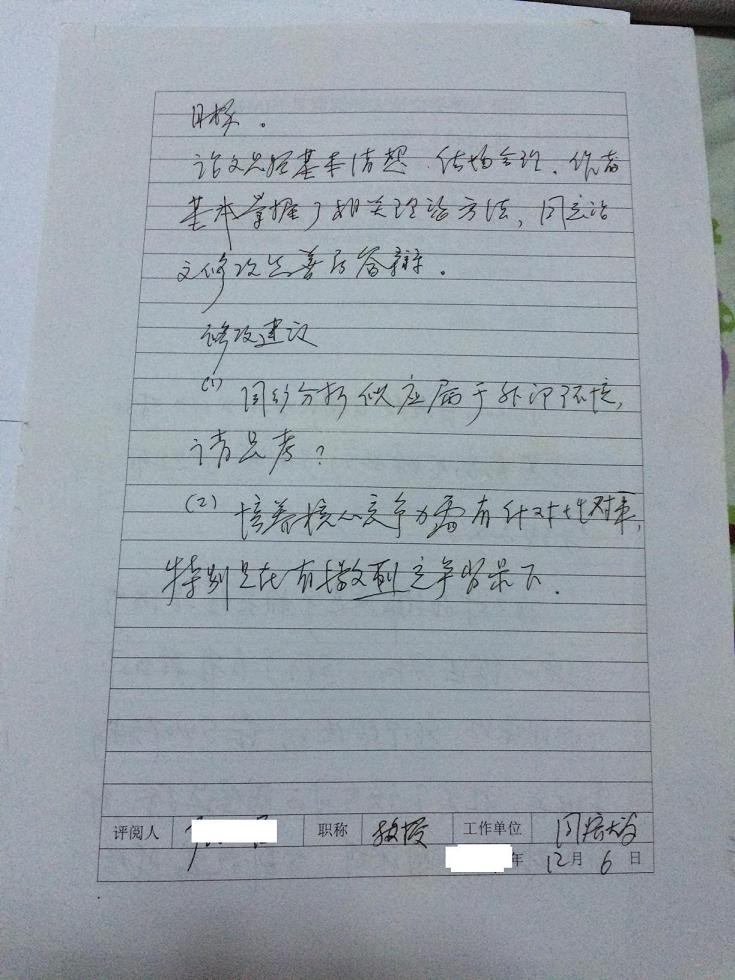 目标。
论文思路基本清楚,结构合理,作者
基本掌握了相关理论方法,同意论
文修改完善后答辩。
修改建议
(1) 同行分析似应属于外部环境,
请思考?
(2) 培养核心竞争力需有针对性对策,
特别是在有激烈竞争背景下.
评阅人 职称 教授 工作单位 同济大学
年 12月 6 日